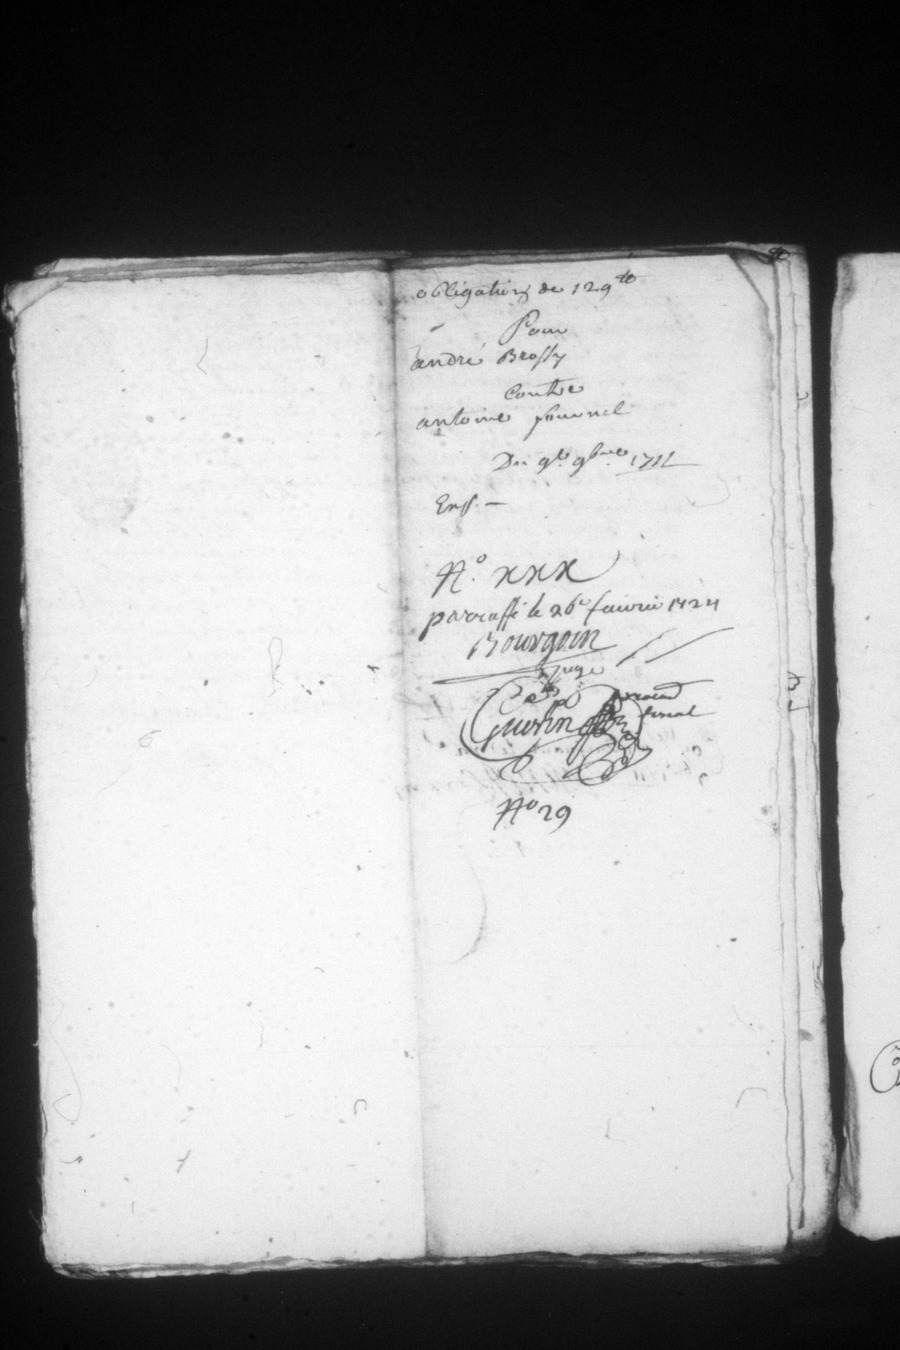 obligation de 129 lt
Pour
andré Brossy
Contre
antoine fournel
Du 9e 9bre
Ens. —
No. xxx
parraffé le 26e feuvrier 1724
Bourgoin
juge
Guerin
fiscal
No 29